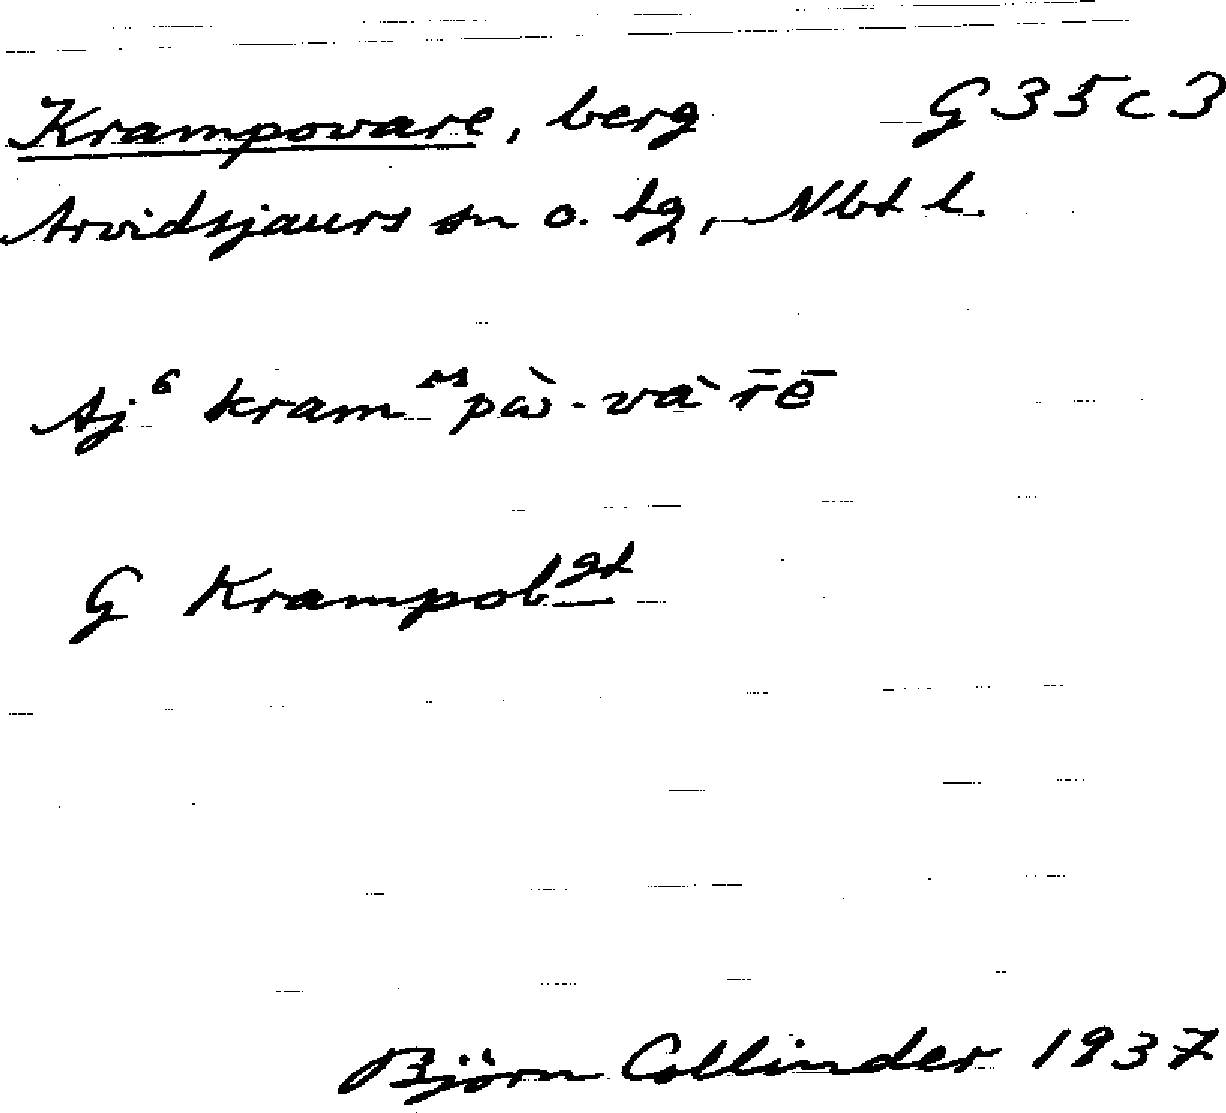 Krampovare, berg G 35 c 3
Arvidsjaurs sn o. tg, Nbt l.
Aj⁶ kram pὼ-và r̄ē
G Krampobgt
Björn Collinder 1937